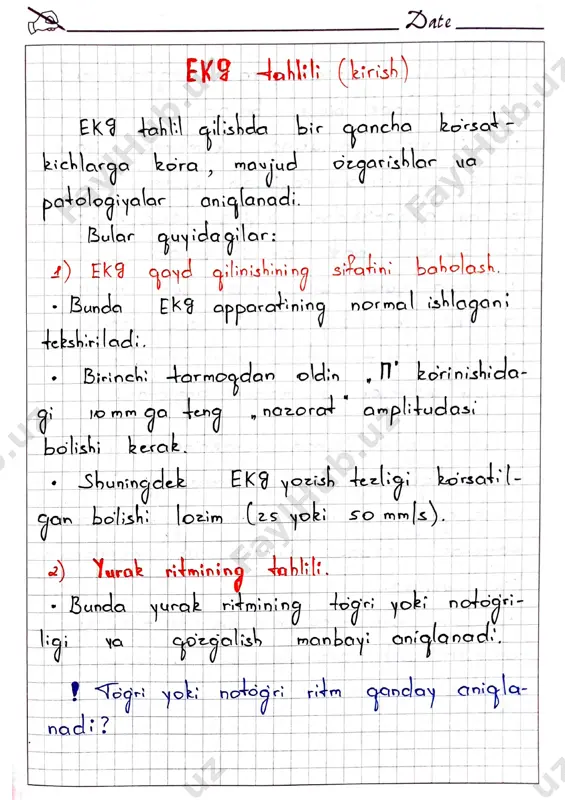 Date
EKG tahlili (kirish)
EKG tahlil qilishda bir qancha ko'rsat-
kichlarga ko'ra, mavjud o'zgarishlar va
patologiyalar aniqlanadi.
Bular quyidagilar:
1) EKG qayd qilinishining sifatini baholash.
• Bunda EKG apparatining normal ishlagani
tekshiriladi.
• Birinchi tarmoqdan oldin „П" ko'rinishida-
gi 10 mm ga teng „nazorat" amplitudasi
bo'lishi kerak.
• Shuningdek EKG yozish tezligi ko'rsatil-
gan bo'lishi lozim (25 yoki 50 mm/s).
2) Yurak ritmining tahlili.
• Bunda yurak ritmining to'g'ri yoki noto'g'ri-
ligi va qo'zg'alish manbayi aniqlanadi.
! To'g'ri yoki noto'g'ri ritm qanday aniqla-
nadi?
FaylHub.uz
FaylHub.uz
FaylHub.uz
FaylHub.uz
b.uz
uz
uz